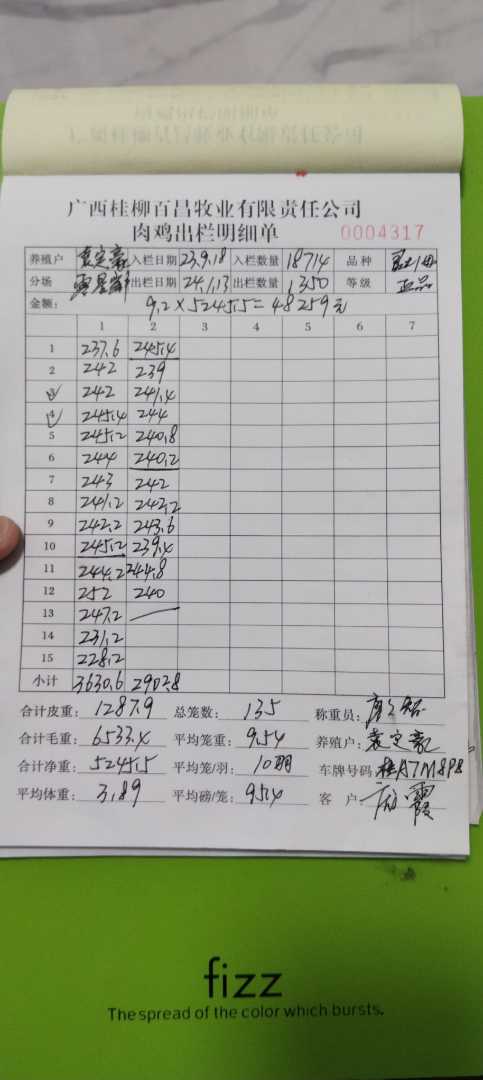 广西桂柳百昌牧业有限责任公司
肉鸡出栏明细单 0004317
养殖户 袁定豪 入栏日期 23.9.18 入栏数量 18714 品种
分场 出栏日期 24.1.13 出栏数量 1350 等级 正品
金额: 9.2×5245.5=48259元
1 2 3 4 5 6 7
1 237.6 245.4
2 242 239
3 242 241.4
4 245.4 244
5 245.2 240.8
6 244 240.2
7 243 242
8 241.2 242.2
9 242.2 243.6
10 245.2 239.4
11 244.2 244.8
12 252 240
13 247.2
14 231.2
15 228.2
小计 3630.6 2902.8
合计皮重: 1287.9 总笼数: 135 称重员:
合计毛重: 6533.4 平均笼重: 9.54 养殖户: 袁定豪
合计净重: 5245.5 平均笼/羽: 10羽 车牌号码: 桂A7M8P8
平均体重: 3.89 平均磅/笼: 95.4 客户: 霞
fizz
The spread of the color which bursts.